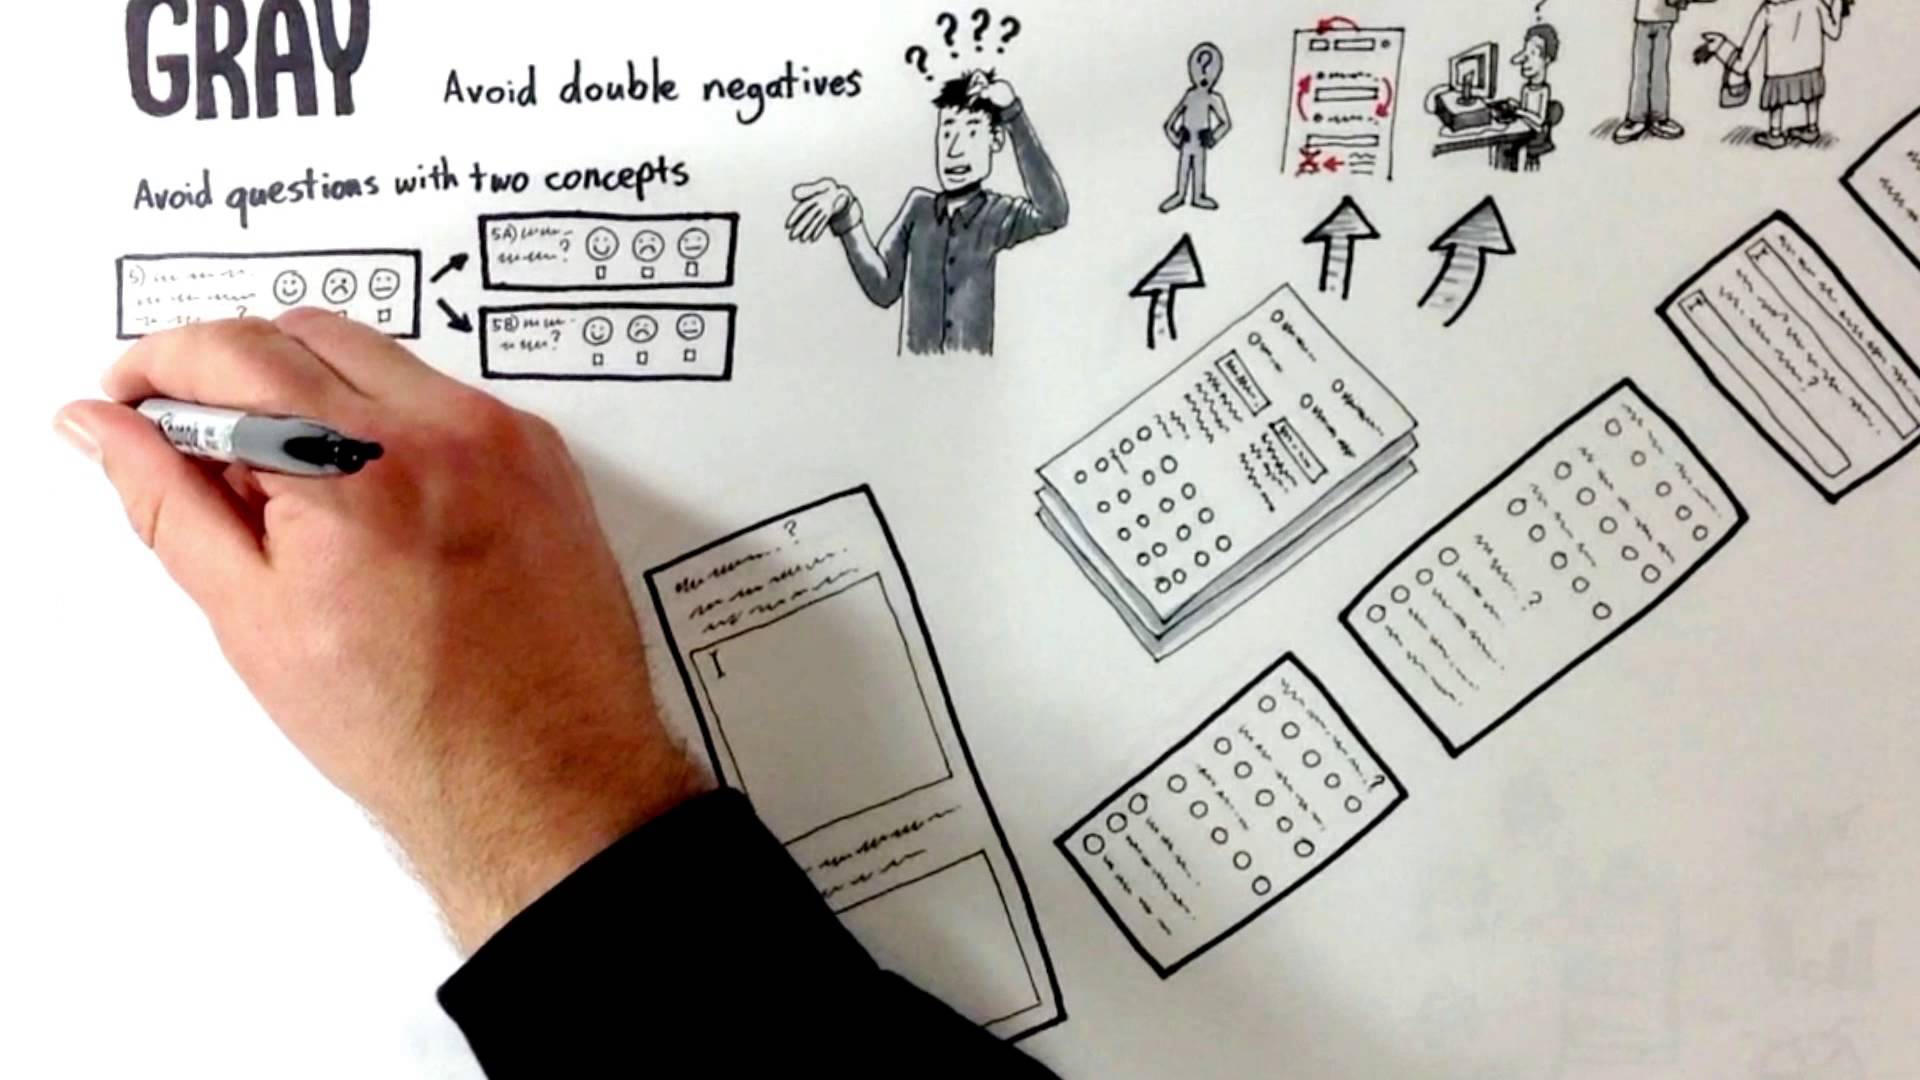 GRAY
Avoid double negatives
? ? ? ?
Avoid questions with two concepts
5)
?
5A)
?
5B)
?
?
?
?
?
?
?